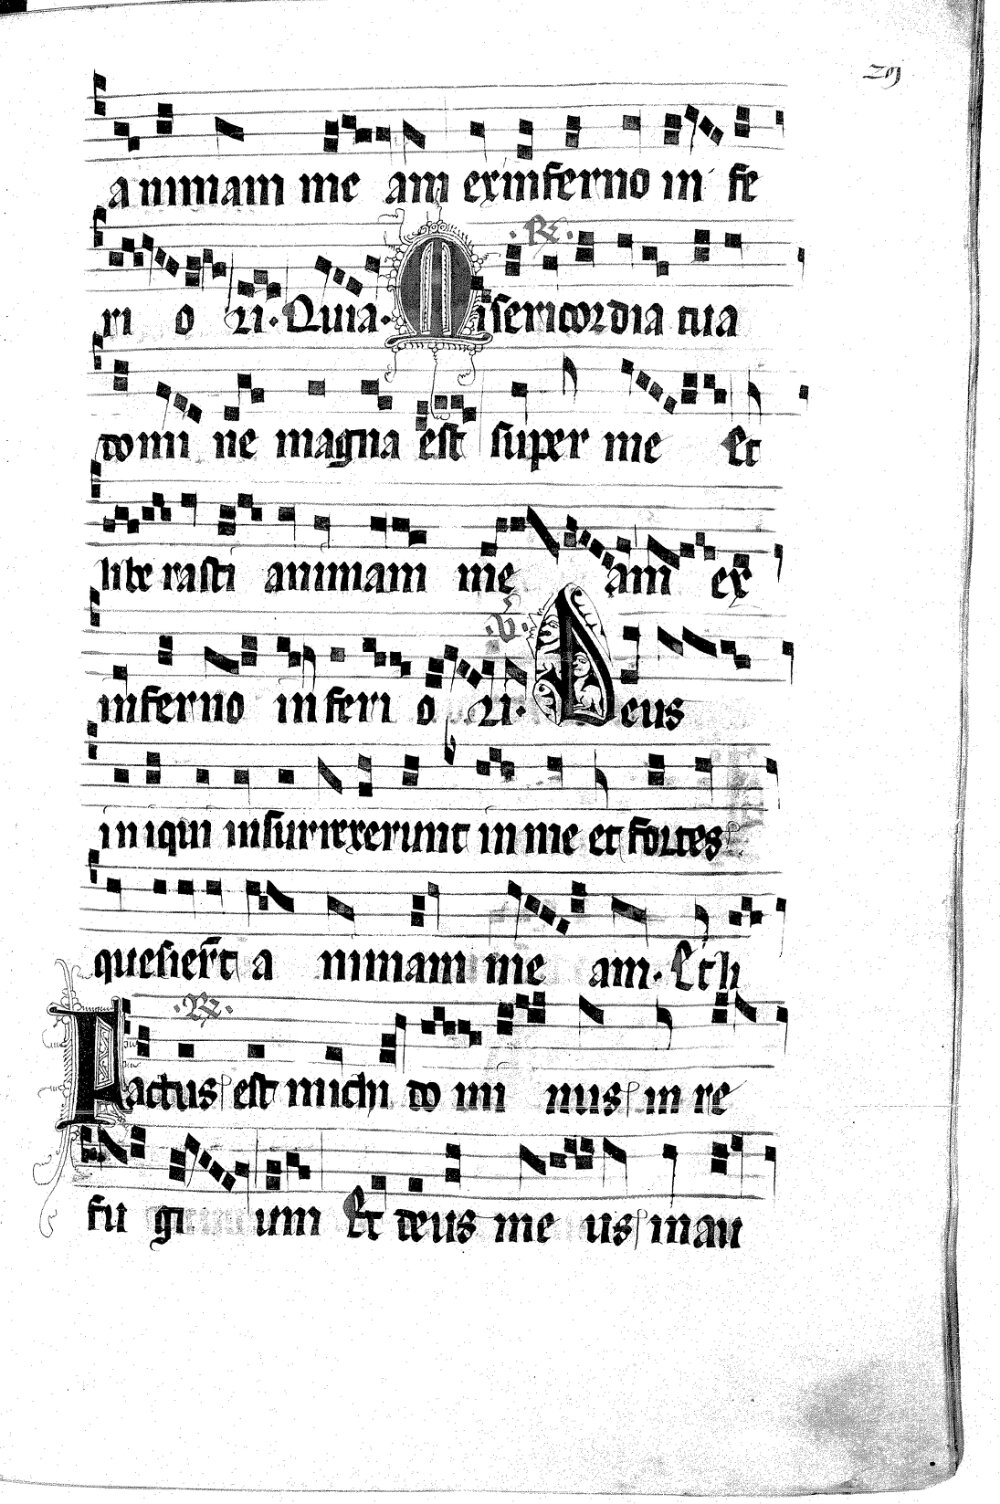 29
animam me am exinferno in fe
.R.
ri o ri. Quia. Misericordia tua
domi ne magna est super me Et
libe rasti animam me am ex
.V.
inferno in feri o ri. Deus
in iqui insurrexerunt in me et fortes
quesier̄t a nimam me am. Et li
.R.
Factus est michi do mi nus in re
fu gi um Et deus me us in au